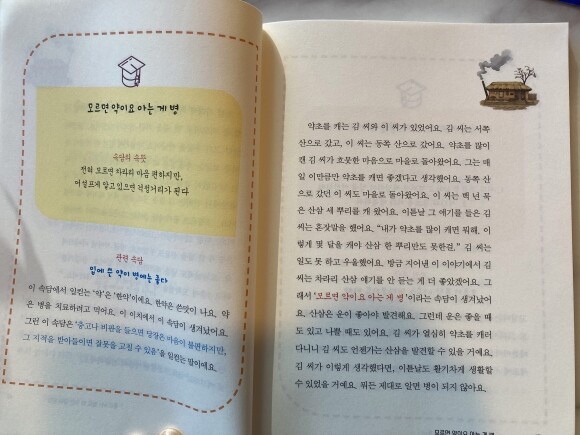 모르면 약이요 아는 게 병
속담의 속뜻
전혀 모르면 차라리 마음 편하지만,
어설프게 알고 있으면 걱정거리가 된다
관련 속담
입에 쓴 약이 병에는 좋다
이 속담에서 일컫는 ‘약’은 ‘한약’이에요. 한약은 쓴맛이 나요. 약
은 병을 치료하려고 먹어요. 이 이치에서 이 속담이 생겨났어요.
그런 이 속담은 “충고나 비판을 들으면 당장은 마음이 불편하지만,
그 지적을 받아들이면 잘못을 고칠 수 있음”을 일컫는 말이에요.
약초를 캐는 김 씨와 이 씨가 있었어요. 김 씨는 서쪽
산으로 갔고, 이 씨는 동쪽 산으로 갔어요. 약초를 많이
캔 김 씨가 흐뭇한 마음으로 마을로 돌아왔어요. 그는 매
일 이만큼만 약초를 캐면 좋겠다고 생각했어요. 동쪽 산
으로 갔던 이 씨도 마을로 돌아왔어요. 이 씨는 백 년 묵
은 산삼 세 뿌리를 캐 왔어요. 이튿날 그 얘기를 들은 김
씨는 혼잣말을 했어요. “내가 약초를 많이 캐면 뭐해. 이
렇게 몇 달을 캐야 산삼 한 뿌리만도 못한걸.” 김 씨는
일도 못 하고 우울했어요. 방금 지어낸 이 이야기에서 김
씨는 차라리 산삼 얘기를 안 듣는 게 더 좋았겠어요. 그
래서 ‘모르면 약이요 아는 게 병’이라는 속담이 생겨났어
요. 산삼은 운이 좋아야 발견해요. 그런데 운은 좋을 때
도 있고 나쁠 때도 있어요. 김 씨가 열심히 약초를 캐러
다니니 김 씨도 언젠가는 산삼을 발견할 수 있을 거예요.
김 씨가 이렇게 생각했다면, 이튿날도 활기차게 생활할
수 있었을 거예요. 뭐든 제대로 알면 병이 되지 않아요.
모르면 약이요 아는 게 병